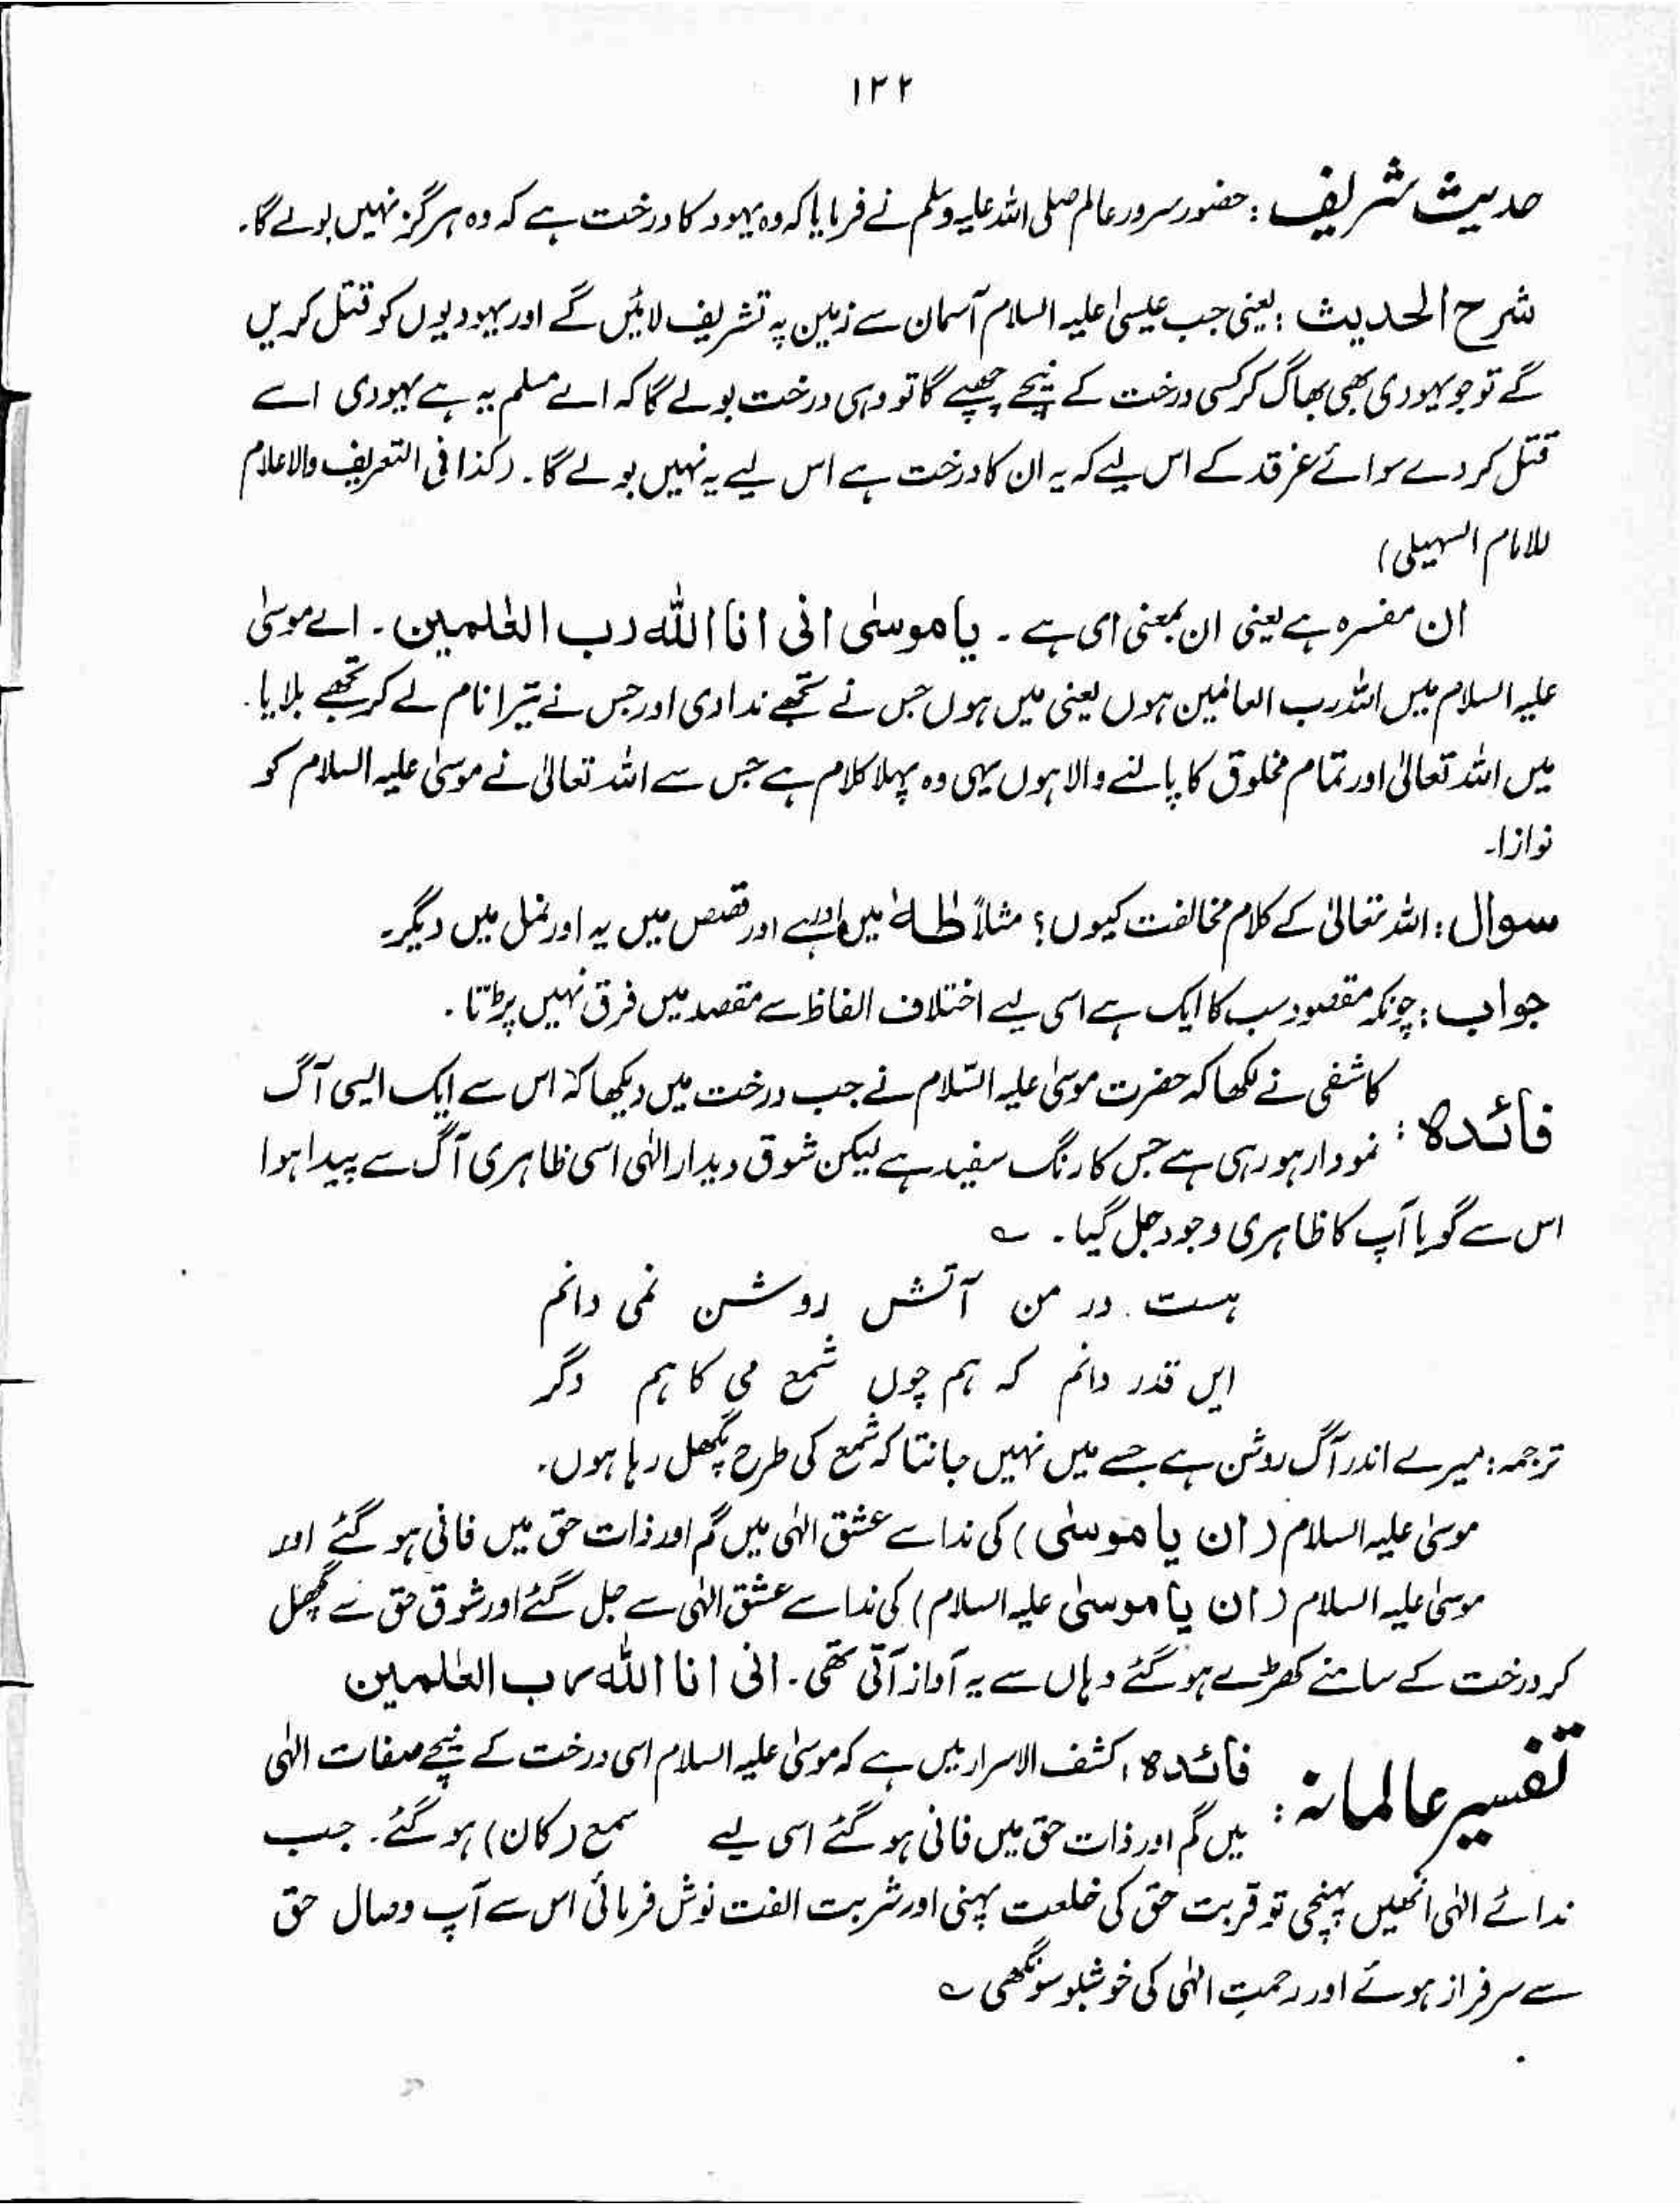 ۱۲۲
حدیث شریف : حضور سرور عالم صلی اللہ علیہ وسلم نے فرمایا کہ وہ یہود کا درخت ہے کہ وہ ہرگز نہیں بولے گا۔
شرح الحدیث : یعنی جب عیسیٰ علیہ السلام آسمان سے زمین پہ تشریف لائیں گے اور یہودیوں کو قتل کریں
گے تو جو یہودی بھی بھاگ کر کسی درخت کے نیچے چھپے گا تو وہی درخت بولے گا کہ اے مسلم یہ ہے یہودی اسے
قتل کر دے سوائے غرقد کے اس لیے کہ یہ ان کا درخت ہے اس لیے یہ نہیں بولے گا۔ (کذا فی التعریف والاعلام
للامام السہیلی)
ان مفسرہ ہے یعنی ان بمعنی ای ہے ۔ یا موسٰی انی انا اللّٰہ رب العٰلمین ۔ اے موسیٰ
علیہ السلام میں اللہ رب العالمین ہوں یعنی میں ہوں جس نے تجھے ندا دی اور جس نے تیرا نام لے کر تجھے بلایا۔
میں اللہ تعالیٰ اور تمام مخلوق کا پالنے والا ہوں یہی وہ پہلا کلام ہے جس سے اللہ تعالیٰ نے موسیٰ علیہ السلام کو
نوازا۔
سوال : اللہ تعالیٰ کے کلام مخالفت کیوں؟ مثلاً طٰہٰ میں اور قصص میں یہ اور نمل میں دیگر۔
جواب : چونکہ مقصود سب کا ایک ہے اسی لیے اختلاف الفاظ سے مقصد میں فرق نہیں پڑتا۔
فائدہ : کاشفی نے لکھا کہ حضرت موسیٰ علیہ السّلام نے جب درخت میں دیکھا کہ اس سے ایک ایسی آگ
نمودار ہو رہی ہے جس کا رنگ سفید ہے لیکن شوق دیدار الٰہی اسی ظاہری آگ سے پیدا ہوا
اس سے گویا آپ کا ظاہری وجود جل گیا۔ ؎
ہست در من آتش روشن نمی دانم
ایں قدر دانم کہ ہم چوں شمع می کاہم دگر
ترجمہ : میرے اندر آگ روشن ہے جسے میں نہیں جانتا کہ شمع کی طرح پگھل رہا ہوں۔
موسیٰ علیہ السلام (ان یا موسٰی) کی ندا سے عشق الٰہی میں گم اور ذات حق میں فانی ہو گئے اور
موسیٰ علیہ السلام (ان یا موسٰی علیہ السلام) کی ندا سے عشق الٰہی سے جل گئے اور شوق حق سے گھل
کر درخت کے سامنے کھڑے ہو گئے وہاں سے یہ آواز آتی تھی۔ انی انا اللّٰہ رب العٰلمین
تفسیر عالمانہ : فائدہ : کشف الاسرار میں ہے کہ موسیٰ علیہ السلام اسی درخت کے نیچے صفات الٰہی
میں گم اور ذات حق میں فانی ہو گئے اسی لیے سمع (کان) ہو گئے۔ جب
ندائے الٰہی انھیں پہنچی تو قربت حق کی خلعت پہنی اور شربت الفت نوش فرمائی اس سے آپ وصال حق
سے سرفراز ہوئے اور رحمت الٰہی کی خوشبو سونگھی ؎